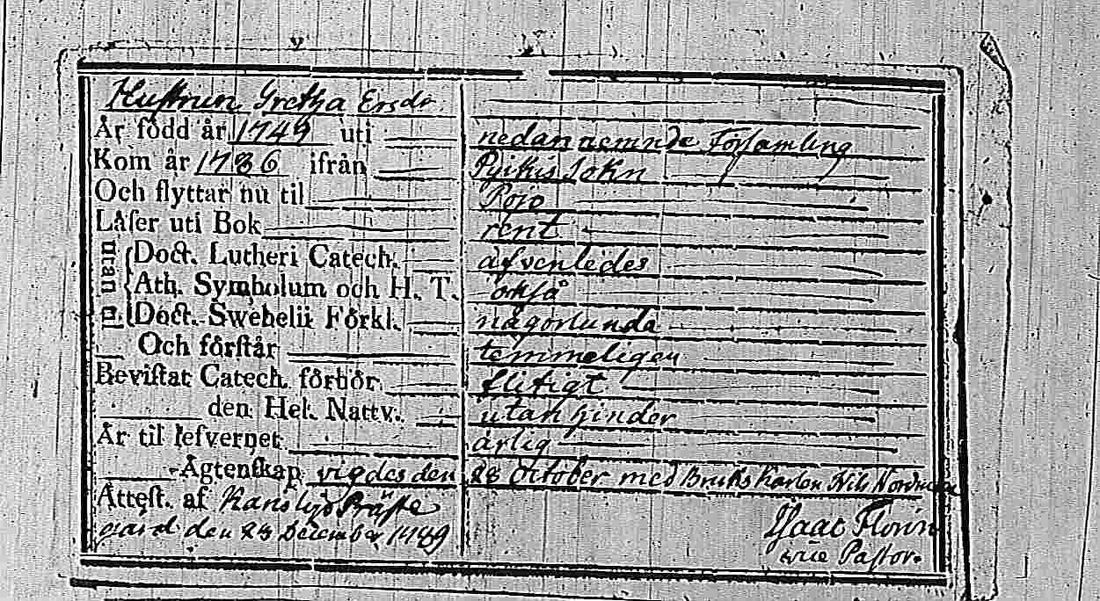 Hustrun Gretha Ersdr.
Är född år 1749 uti nedannemnde Församling
Kom år 1786 ifrån Pijkis Sokn
Och flyttar nu til Pojo
Låser uti Bok rent
utan
Doct. Lutheri Catech. äfvenledes
Ath. Symbolum och H. T. också
Doct. Swebelii Förkl. någorlunda
Och förstår temmeligen
Bevistat Catech. förhör flitigt
den Hel. Nattv. utan hinder
Är til lefvernet ärlig
Ägtenskap vigdes den 28 October med Bruks Karlen Nils
Attest. af Karislojo Präste
gård den 28 December 1789
Isaac Florin
vice Pastor.